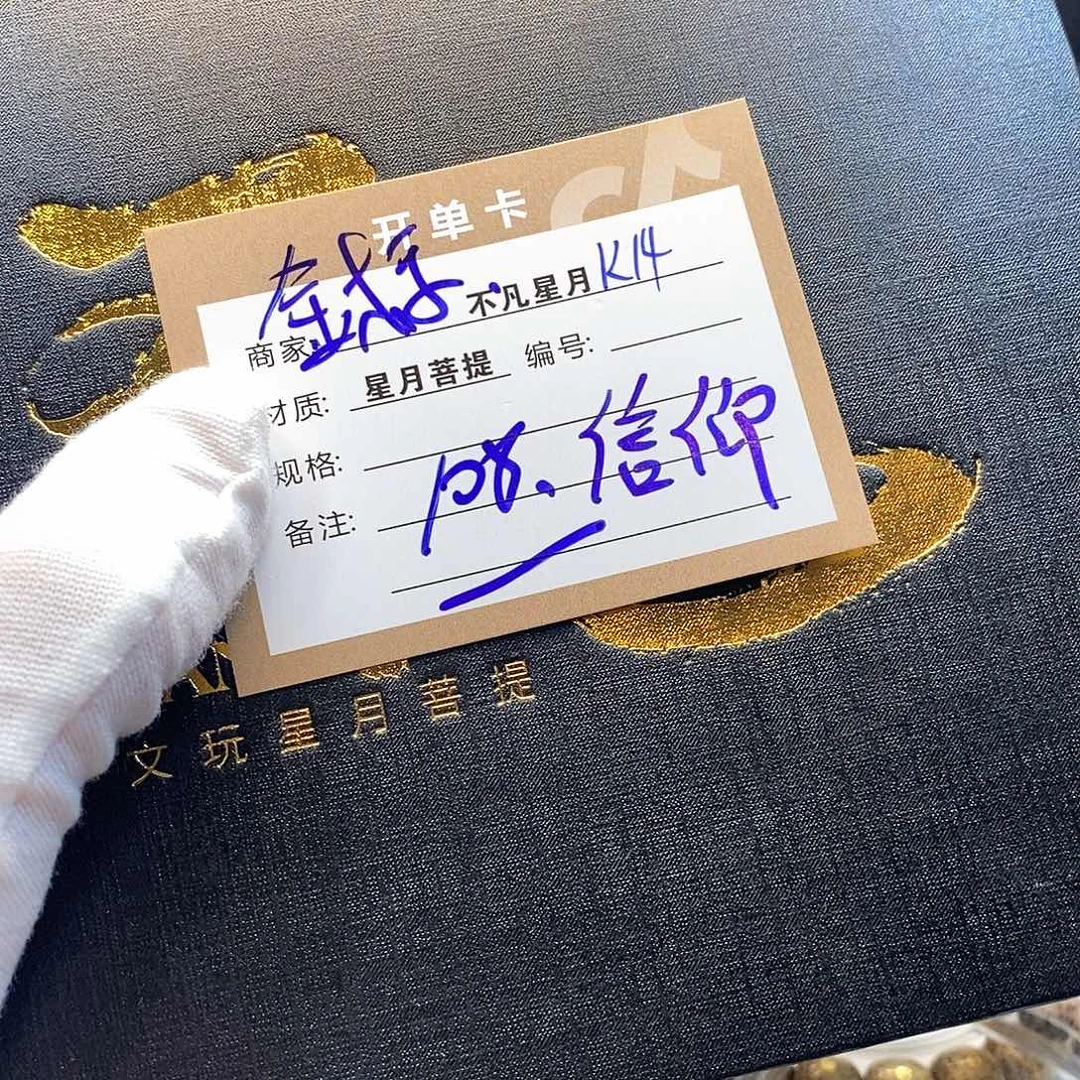 开单卡
商家 不凡星月K14
材质: 星月菩提 编号:
规格:
备注: 信仰
文玩星月菩提